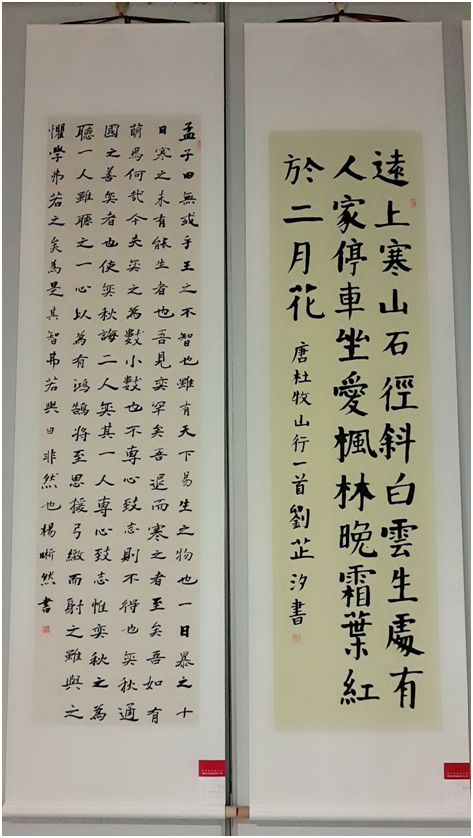 遠上寒山石徑斜白雲生處有
人家停車坐愛楓林晚霜葉紅
於二月花
唐杜牧山行一首劉芷汐書
孟子曰無或乎王之不智也雖有天下易生之物也一日暴之十
日寒之未有能生者也吾見奕罕矣吾退而寒之者至矣吾如有
萌焉何哉今夫奕之為數小數也不專心致志則不得也奕秋通
國之善奕者也使奕秋誨二人奕其一人專心致志惟奕秋之為
聽一人雖聽之一心以為有鴻鵠將至思援弓繳而射之雖與之
懼學弗若之矣為是其智弗若與曰非然也楊晰然書